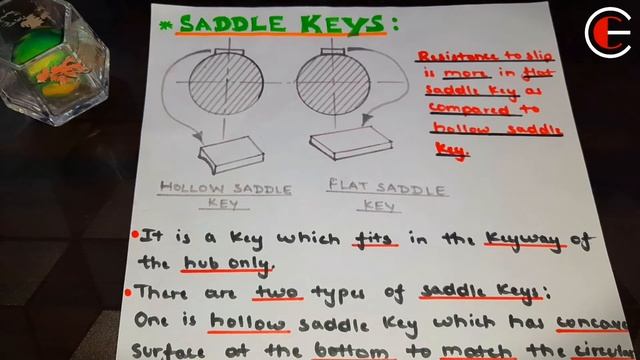 * SADDLE KEYS:
Resistance to slip
is more in flat
saddle key as
compared to
hollow saddle
key.
HOLLOW SADDLE
KEY
FLAT SADDLE
KEY
• It is a key which fits in the keyway of
the hub only.
• There are two types of saddle keys:
One is hollow saddle key which has concave
surface at the bottom to match the circular